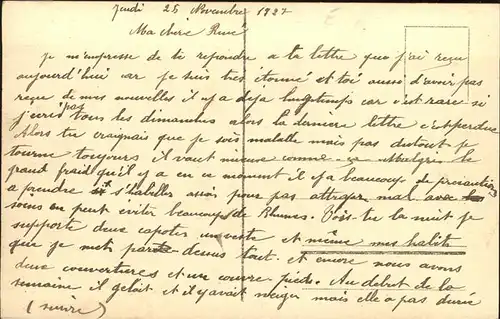 Jeudi 25 Novembre 1927
Ma chère René
Je m'empresse de te repondre a ta lettre que j'ai reçu
aujourd'hui car je suis très étonné et toi aussi d'avoir pas
reçu de mes nouvelles il y a deja longtemps car c'est rare si
j'ecris pas tous les dimanches alors la derniere lettre c'est perdue
Alors tu craignais que je sois malalle mais pas dutout je
tourne toujours il vaut mieux comme ça Malgrès le
grand froid qu'il y a en ce moment il y a beaucoup de precautions
a prendre s'habiller assés pour pas attraper mal avec
soins on peut eviter beaucoup de Rhumes. Vois-tu la nuit je
supporte deux capotes un veste et même mes habits
que je met par dessus tout. et encore nous avons
deux couvertures et un couvre-pieds. Au début de la
semaine il gelait et il y avait neiger mais elle a pas durée
(suivre)